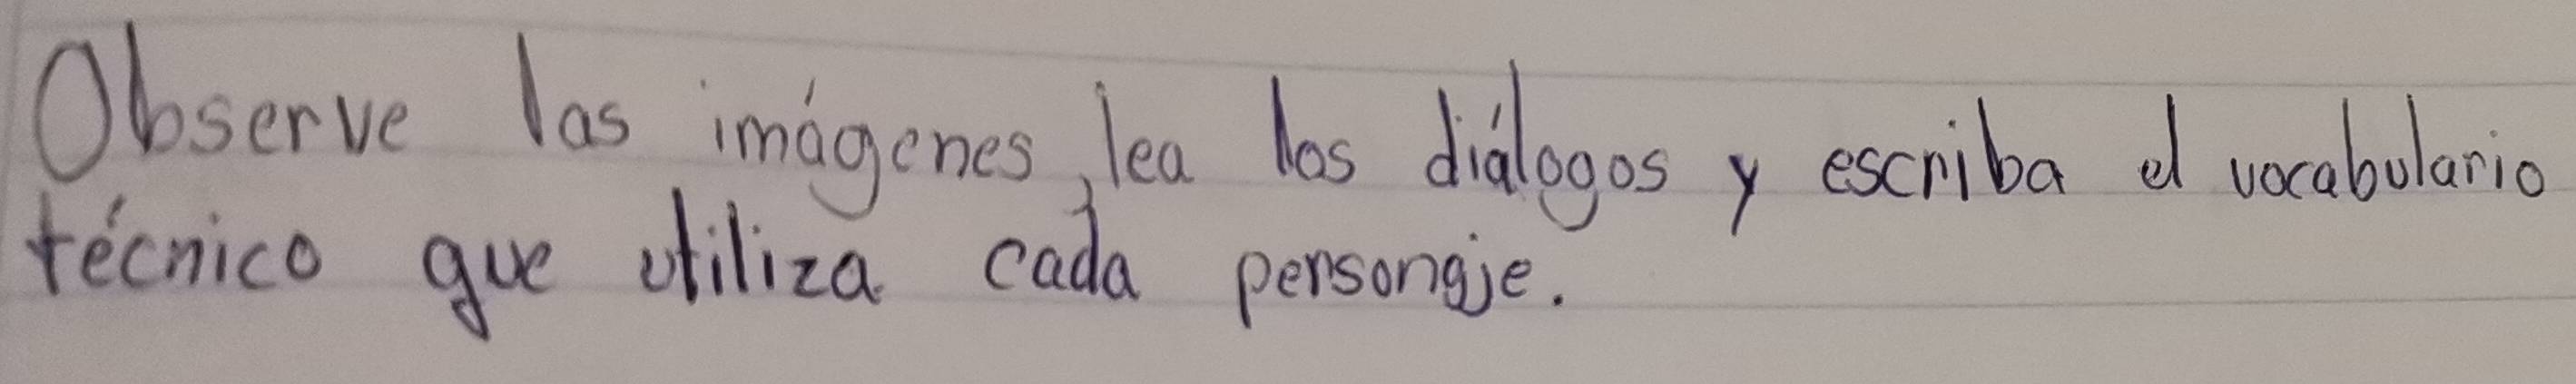 Observe las imágenes, lea los diálogos y escriba el vocabulario
técnico que utiliza cada personaje.